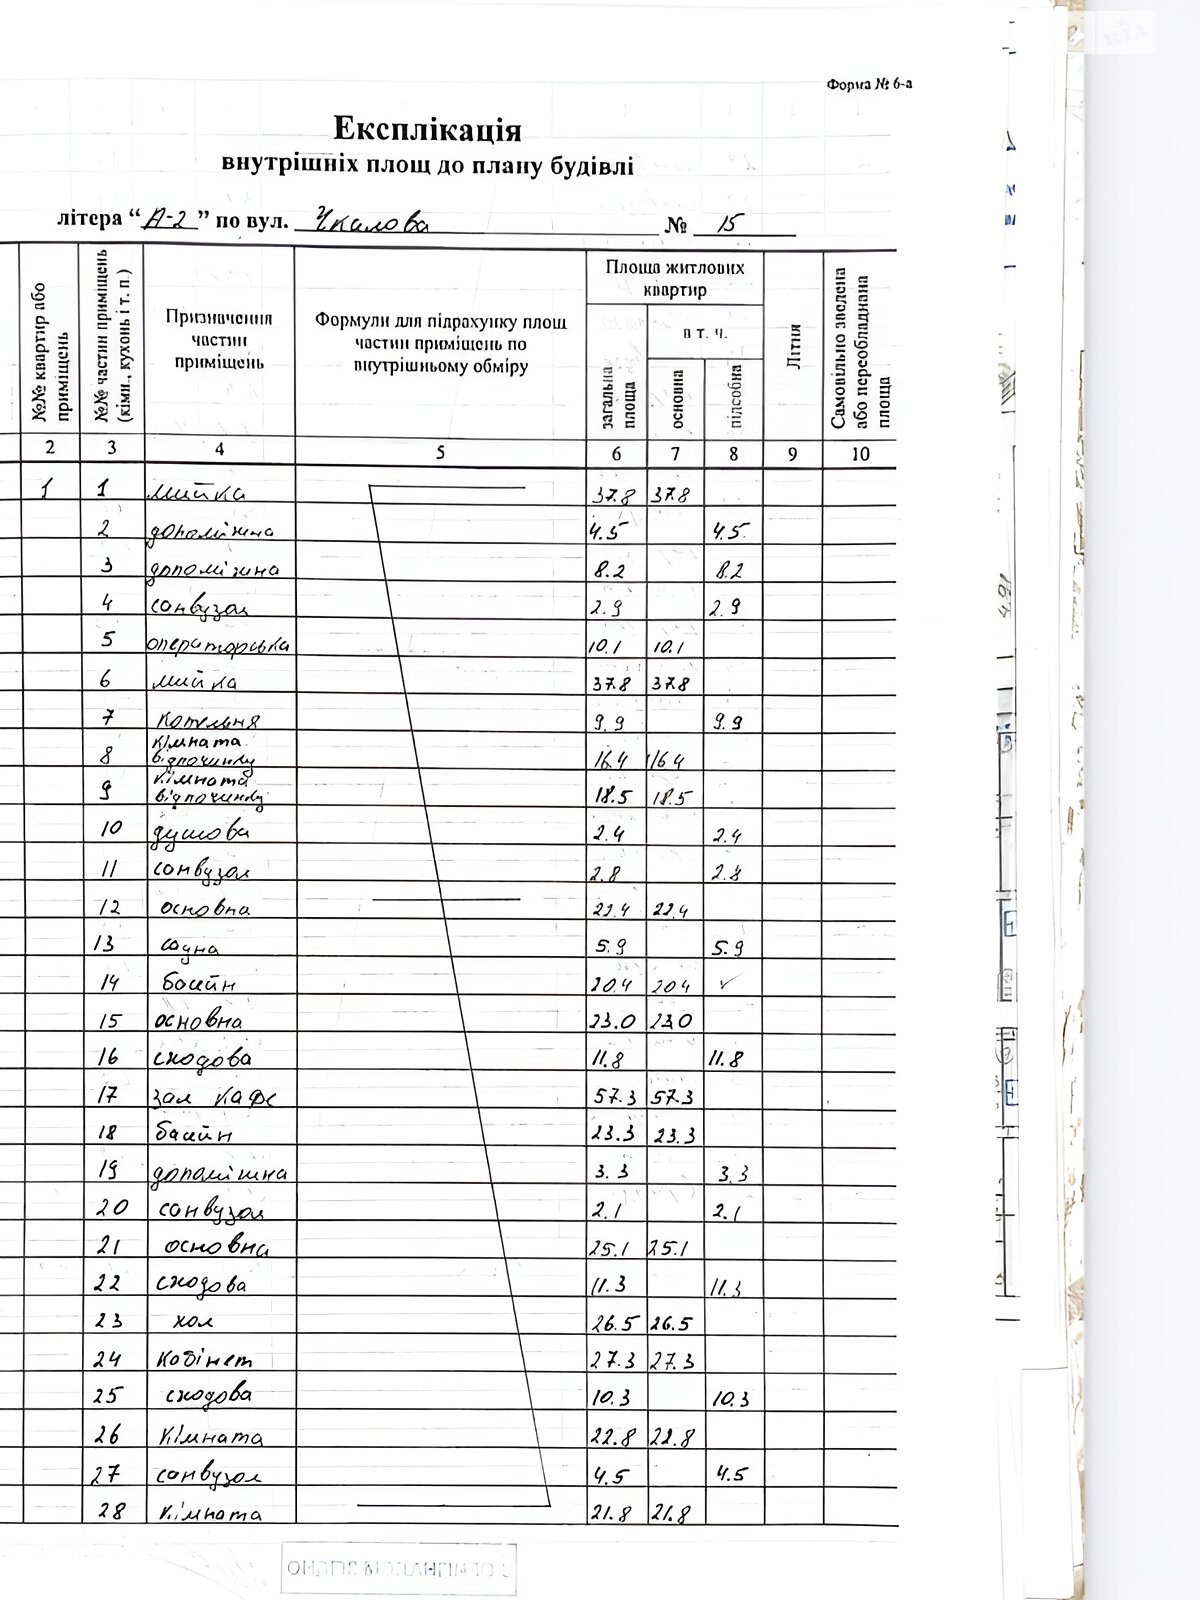 RIA
Форма № 6-а
Експлікація
внутрішніх площ до плану будівлі
літера “ А-2 ” по вул. Чкалова № 15
№№ квартир або приміщень
№№ частин приміщень (кімн., кухонь і т. п.)
Призначення частин приміщень
Формули для підрахунку площ частин приміщень по внутрішньому обміру
Площа житлових квартир
загальна площа
в т. ч.
основна
підсобна
Літня
Самовільно зведена або переобладнана площа
2 3 4 5 6 7 8 9 10
1 1 мийка 37.8 37.8
2 допоміжна 4.5 4.5
3 допоміжна 8.2 8.2
4 санвузол 2.9 2.9
5 операторська 10.1 10.1
6 мийка 37.8 37.8
7 котельня 9.9 9.9
8 кімната відпочинку 16.4 16.4
9 кімната відпочинку 18.5 18.5
10 душова 2.4 2.4
11 санвузол 2.8 2.8
12 основна 22.4 22.4
13 сауна 5.9 5.9
14 басейн 20.4 20.4
15 основна 23.0 23.0
16 сходова 11.8 11.8
17 зал кафе 57.3 57.3
18 басейн 23.3 23.3
19 допоміжна 3.3 3.3
20 санвузол 2.1 2.1
21 основна 25.1 25.1
22 сходова 11.3 11.3
23 хол 26.5 26.5
24 кабінет 27.3 27.3
25 сходова 10.3 10.3
26 кімната 22.8 22.8
27 санвузол 4.5 4.5
28 кімната 21.8 21.8